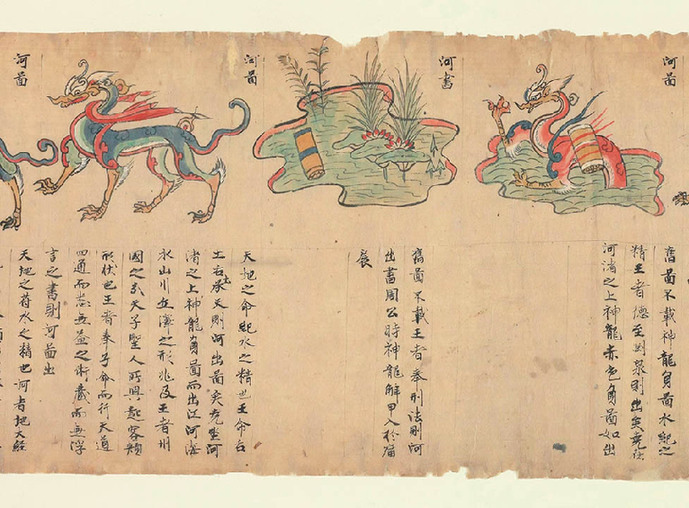 河圖
舊圖不載神龍負圖水紀之
精王者德至渕泉則出矣堯在
河渚之上神龍赤色負圖如出
河書
舊圖不載王者奉刑法則河
出書周公時神龍解甲入於
河圖
天地之命紀水之精也王命右
土右承天則河出圖矣堯坐河
渚之上神龍負圖而出江河海
水山川丘澤之形兆及王者州
國之分天子聖人所興起容顏
形狀也王者奉命而行天道
四通而悉無益之術藏而無浮
言之書則河圖出
河圖
天地之苻水之精也河者地大經